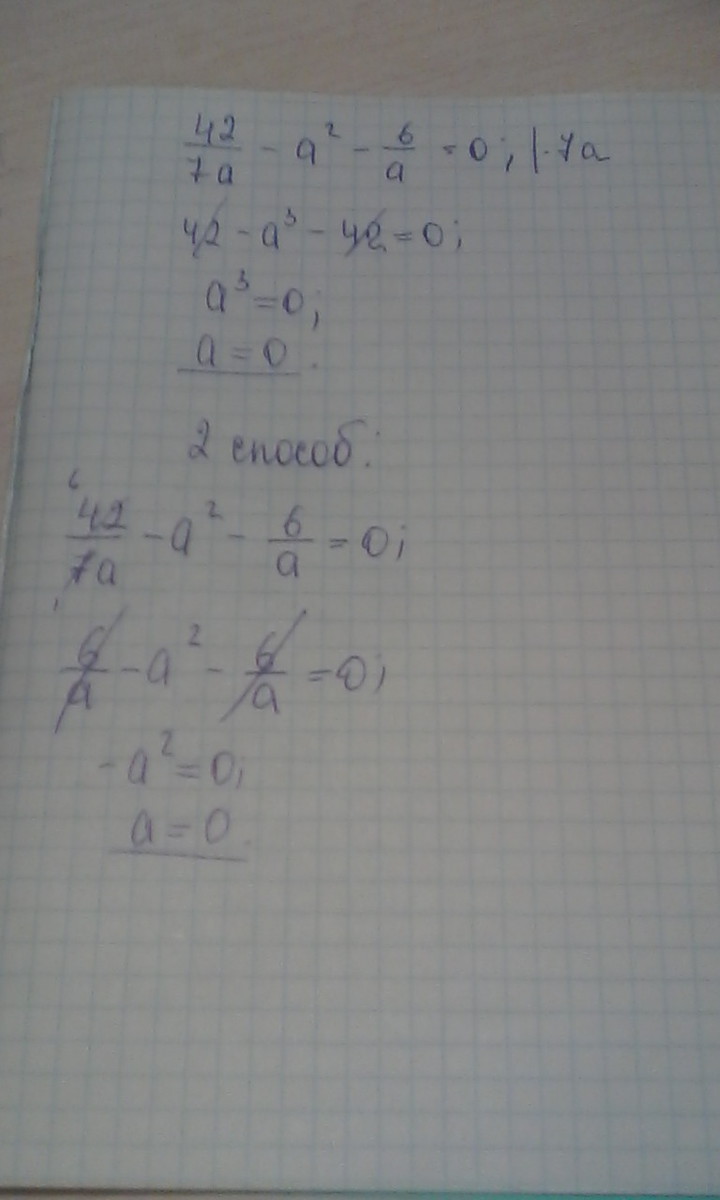 42/7a - a² - 6/a = 0; |·7a
42 - a³ - 42 = 0;
a³ = 0;
a = 0.
2 способ:
6 42/7a 1 - a² - 6/a = 0;
6/a - a² - 6/a = 0;
- a² = 0;
a = 0.